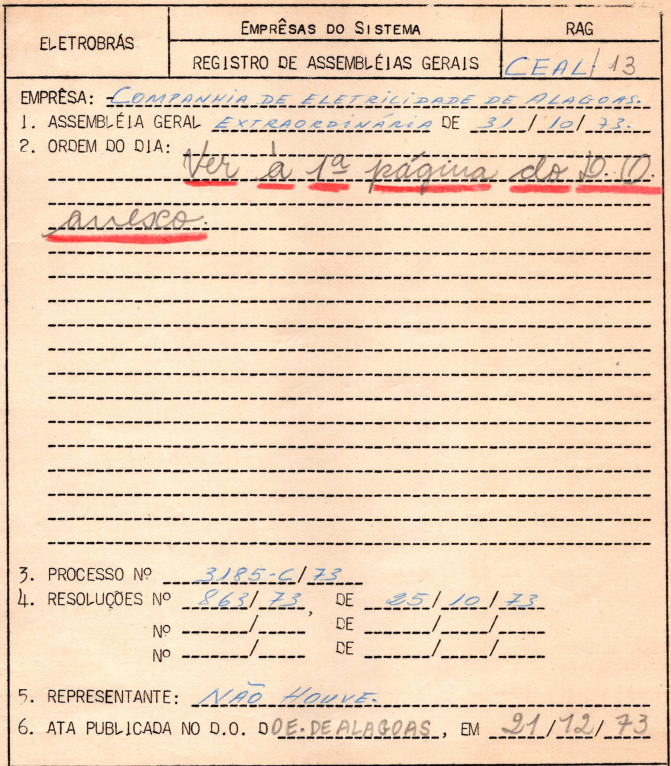 ELETROBRÁS
EMPRÊSAS DO SISTEMA
RAG
REGISTRO DE ASSEMBLÉIAS GERAIS
CEAL/13
EMPRÊSA: COMPANHIA DE ELETRICIDADE DE ALAGOAS.
1. ASSEMBLÉIA GERAL EXTRAORDINÁRIA DE 31/10/73.
2. ORDEM DO DIA:
Ver à 1ª página do D.O.
anexo.
3. PROCESSO Nº 3185-C/73
4. RESOLUÇÕES Nº 863/73, DE 25/10/73
Nº / DE / /
Nº / DE / /
5. REPRESENTANTE: NÃO HOUVE.
6. ATA PUBLICADA NO D.O. DOE. DE ALAGOAS, EM 21/12/73